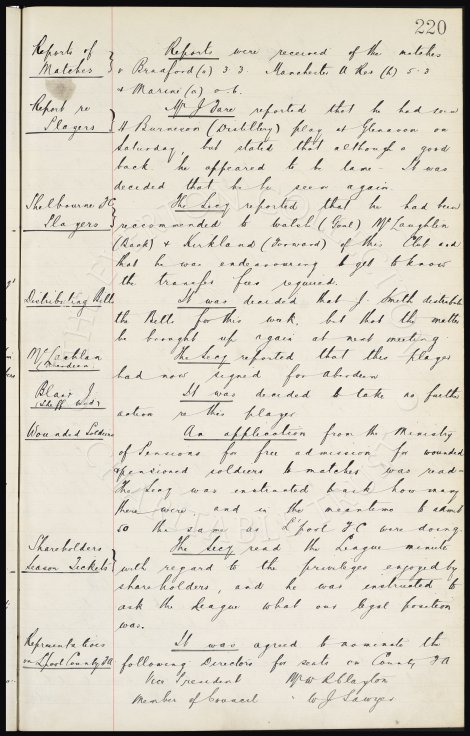 220
Reports of Matches
Reports were received of the matches
v Bradford (a) 3.3. Manchester U Res (h) 5.3
& Marine (a) 0.6.
Report re Players
Mr J Dare reported that he had seen
H Burnison (Distillery) play at Glenavon on
Saturday, but stated that although a good
back he appeared to be lame. It was
decided that he be seen again.
Shelbourne FC Players
The Secy reported that he had been
recommended to watch (Goal) McLaughlin
(Back) & Kirkland (Forward) of this Club and
that he was endeavouring to get to know
the transfer fees required.
Distributing Bills
It was decided that J. Smith distribute
the Bills for this week, but that the matter
be brought up again at next meeting
McLachlan (Aberdeen)
The Secy reported that this player
had now signed for Aberdeen
Blair J (Sheff Wed)
It was decided to take no further
action re this player
Wounded Soldiers
An application from the Ministry
of Pensions for free admission for wounded
pensioned soldiers to matches was read.
The Secy was instructed to ask how many
there were and in the meantime to admit
50 the same as L'pool FC were doing
Shareholders Season Tickets
The Secy read the League minute
with regard to the privileges enjoyed by
shareholders, and he was instructed to
ask the League what our legal position
was.
Representatives on L'pool County FA
It was agreed to nominate the
following Directors for seats on County FA
Vice President Mr W R Clayton
Member of Council " W J Sawyer